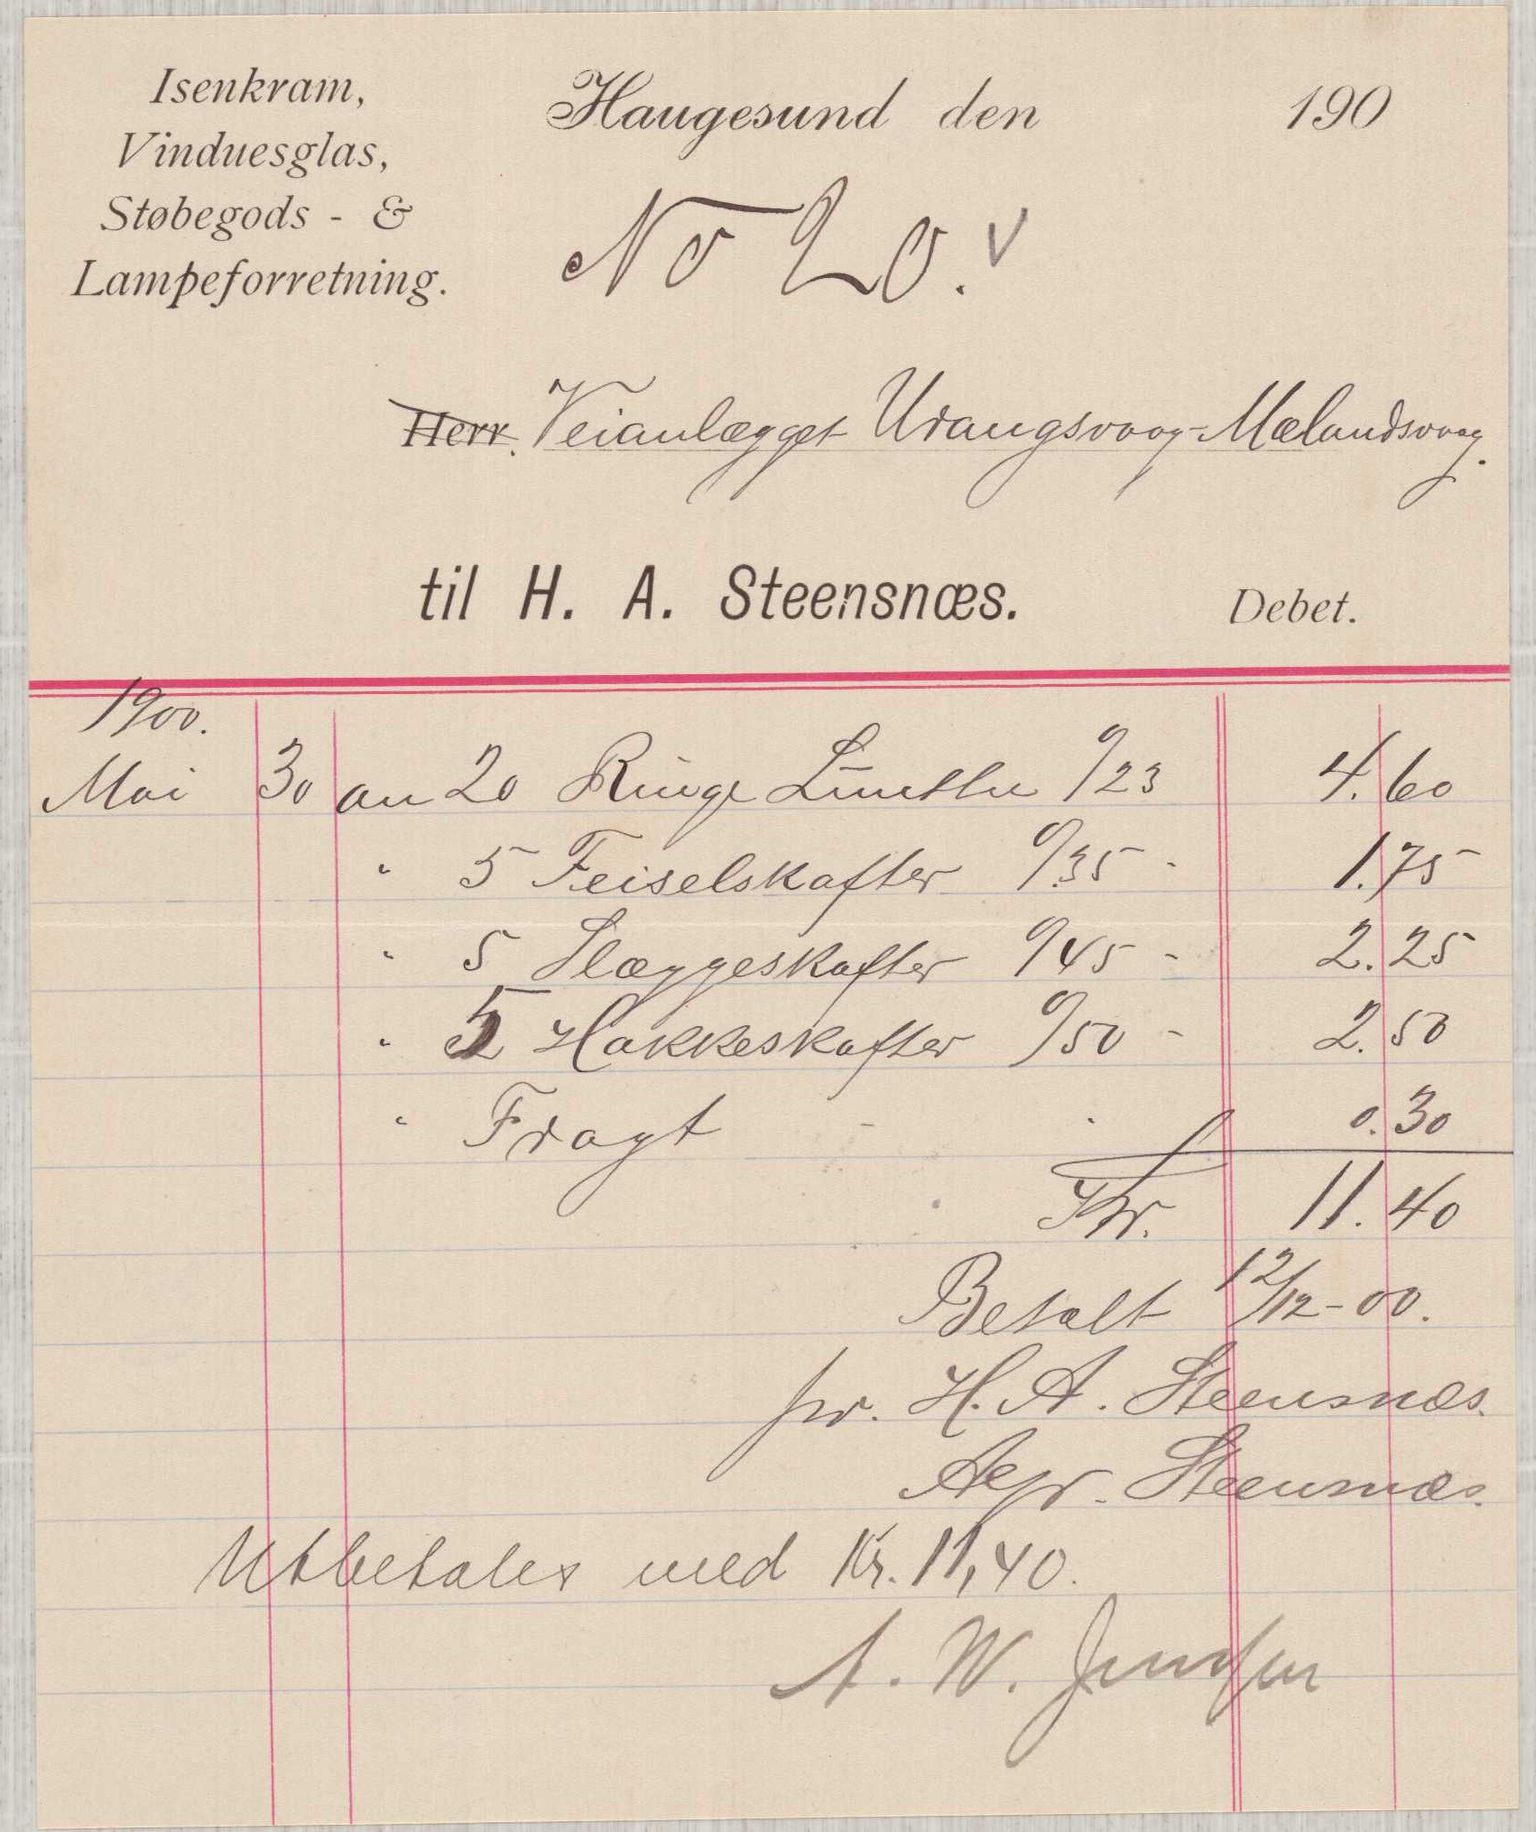 Isenkram,
Vinduesglas,
Støbegods - &
Lampeforretning.
Haugesund den 190
No 20. V
Herr. Veianlægget Urangsvaag-Mælandsvaag.
til H. A. Steensnæs. Debet.
1900.
Mai 30 an 20 Ringe Lunthe %23 4.60
" 5 Feiselskafter %35 - 1.75
" 5 Slæggeskafter %45 - 2.25
" 5 Hakkeskafter %50 - 2.50
" Fragt - - 0.30
Kr. 11.40
Betalt 12/12-00.
pr. H. A. Steensnæs.
Steensnæs.
Utbetales med Kr. 11,40.
A. W. Jensen